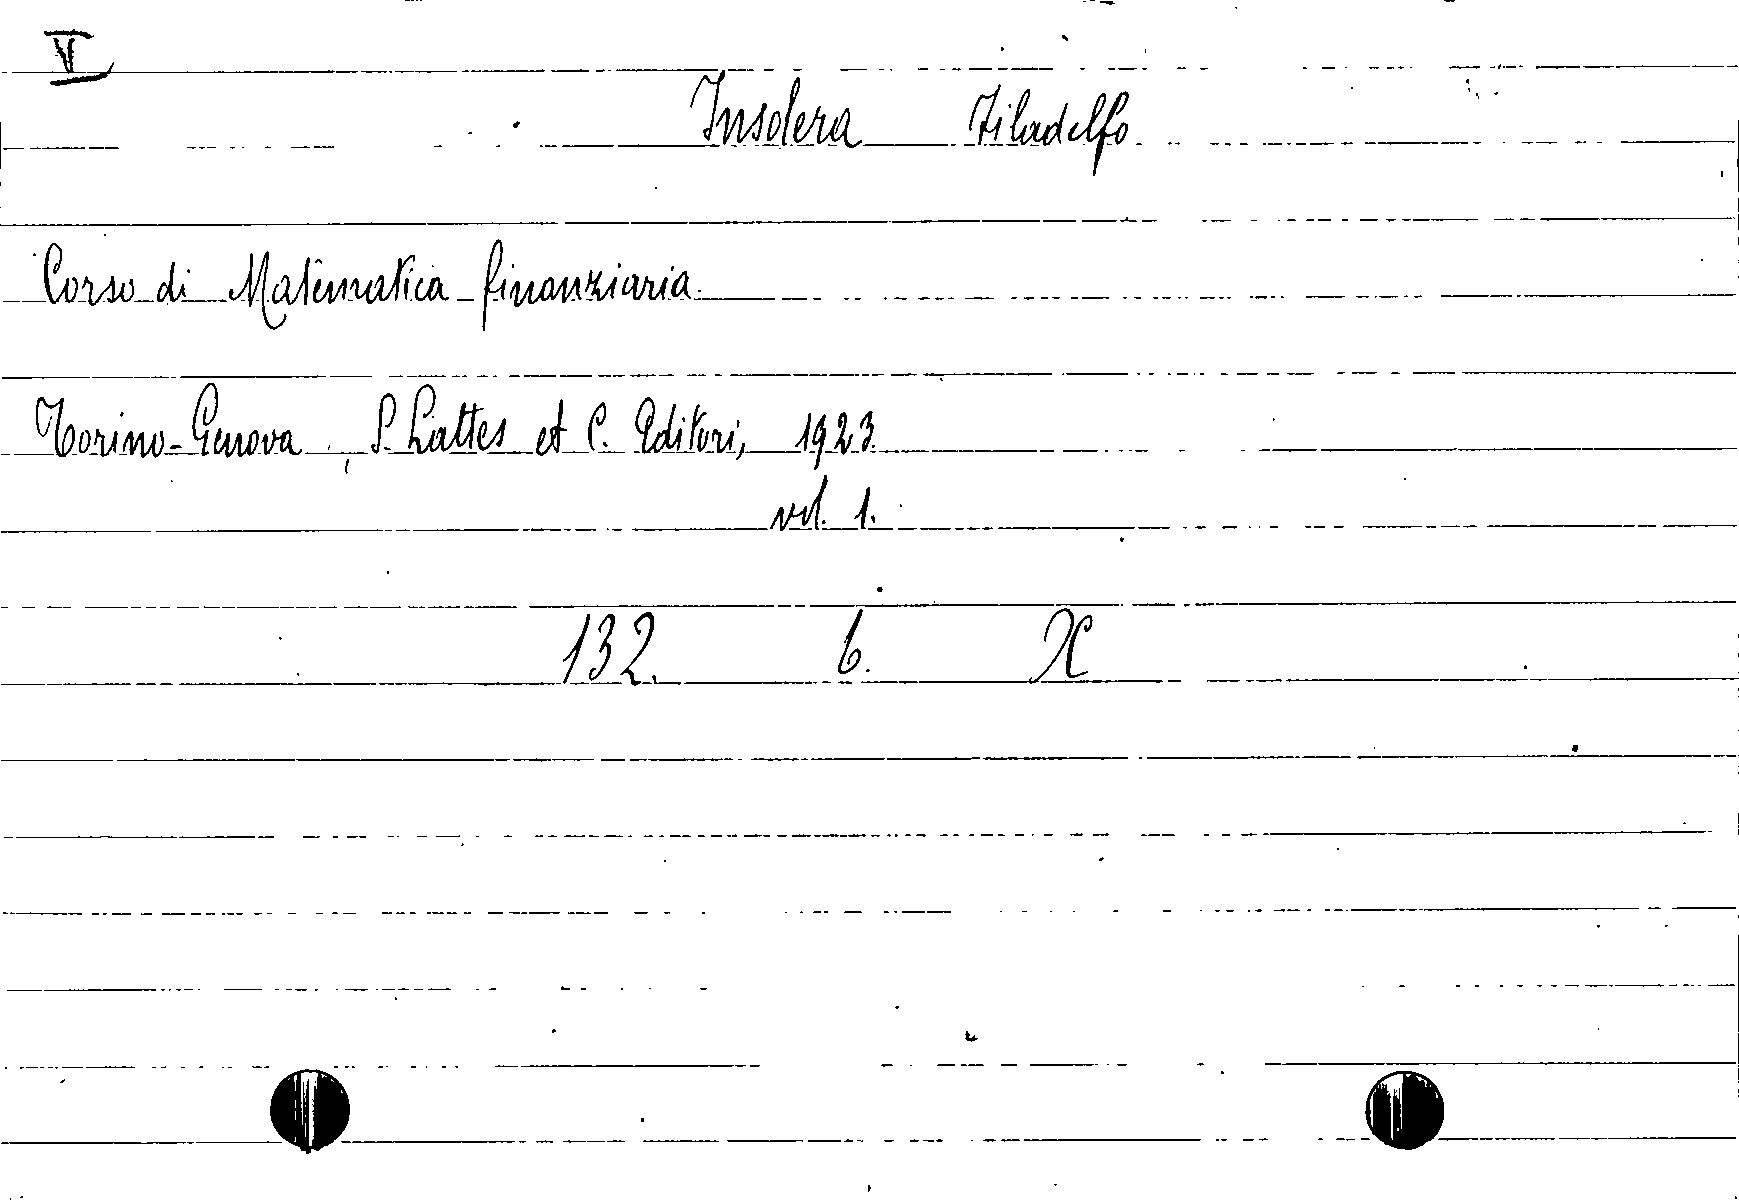 V
Insolera Filadelfo
Corso di Matematica finanziaria.
Torino-Genova, S. Lattes et C. Editori, 1923.
vol. 1.
132. 6. X